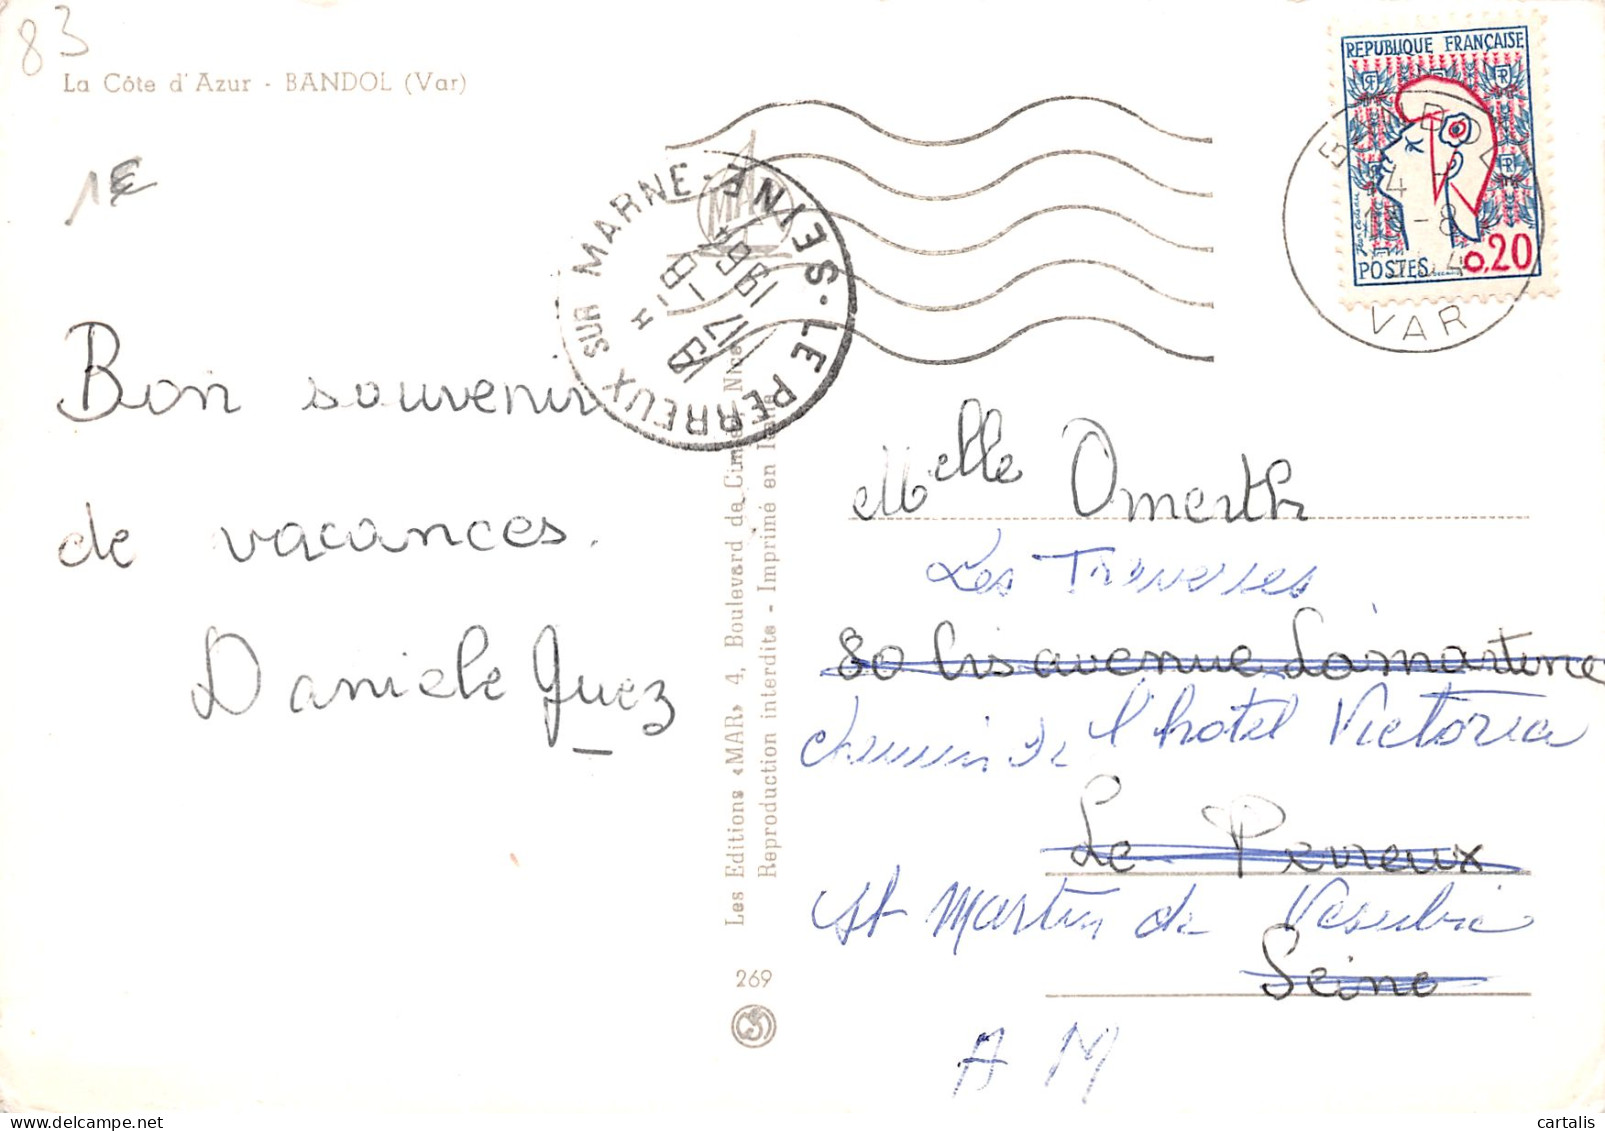 83
La Côte d'Azur - BANDOL (Var)
1€
Bon souvenir
de vacances.
Daniele Guez
LE PERREUX SUR MARNE - SEINE
16 H
17 -8
1964
Les Editions «MAR» 4, Boulevard de Cimiez Nice
Reproduction interdite - Imprimé en Italie
269
REPUBLIQUE FRANÇAISE
POSTES
0,20
BANDOL
14 H
-8
VAR
Melle Omerth
Les Traverses
80 bis avenue Lamartine
chemin de l'hotel Victoria
Le Perreux
St Martin de Vesubie
Seine
A M
cartalis